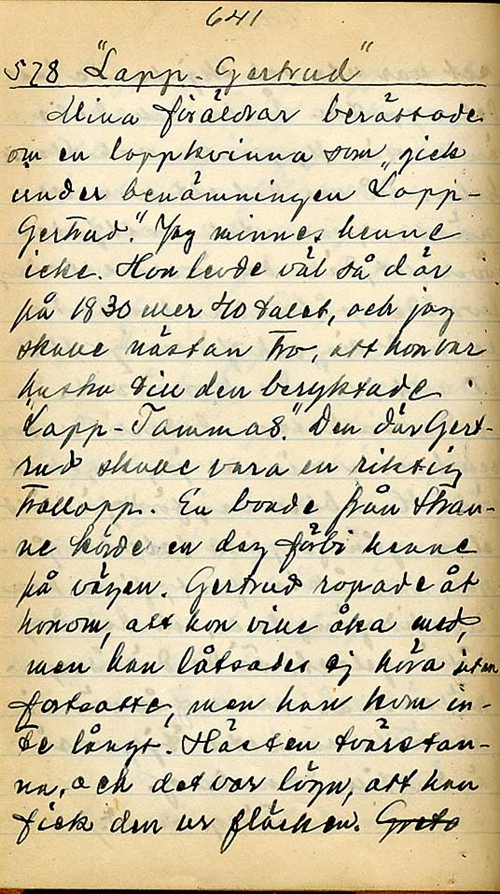 641
578 "Lapp-Gertrud"
Mina föräldrar berättade
om en lappkvinna som gick
under benämningen "Lapp-
Gertrud." Jag minnes henne
icke. Hon levde väl så där
på 1830 eller 40 talet, och jag
skulle nästan tro, att hon var
hustru till den beryktade
"Lapp-Tammas." Den där Gert-
rud skulle vara en riktig
trollapp. En bonde från Stran-
ne körde en dag förbi henne
på vägen. Gertrud ropade åt
honom, att hon ville åka med,
men han låtsades ej höra utan
fortsatte, men han kom in-
te långt. Hästen tvärstan-
na, och det var lögn, att han
fick den ur fläcken.